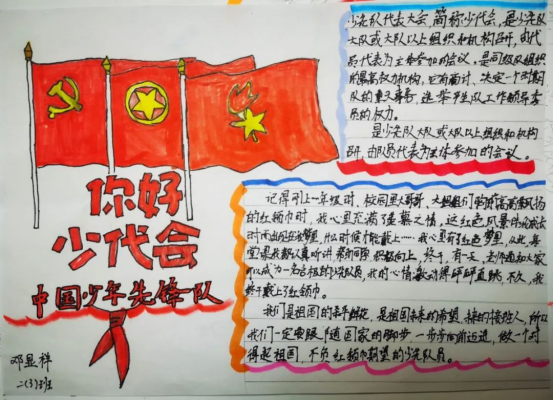 你好
少代会
中国少年先锋队
邓显祥
二(3)班
少先队代表大会,简称少代会,是少先队
大队或大队以上组织和机构召开,由代
表为主体参加的会议。是同级队组织
的最高权力机构,它有商讨、决定一个时期
队的重大事务,选举产生队工作领导委
员的权力。
是少先队大队或大队以上组织和机构
召开,由队员代表为主体参加的会议。
记得刚上一年级时,校园里大哥哥、大姐姐们
的红领巾时,我心里充满羡慕之情,这红色风景
时而出现在我梦里,什么时候才能戴上……我心里有了红色梦想,从此,每
可以成为一名合格的少先队员,我的心情激动得砰砰直跳,不久,我
终于戴上了红领巾。
我们是祖国的花朵,是祖国未来的希望,接的接班人,所以
我们一定要跟随国家的脚步一步步向前迈进,做一个对
得起祖国,不负红领巾期望的少先队员。